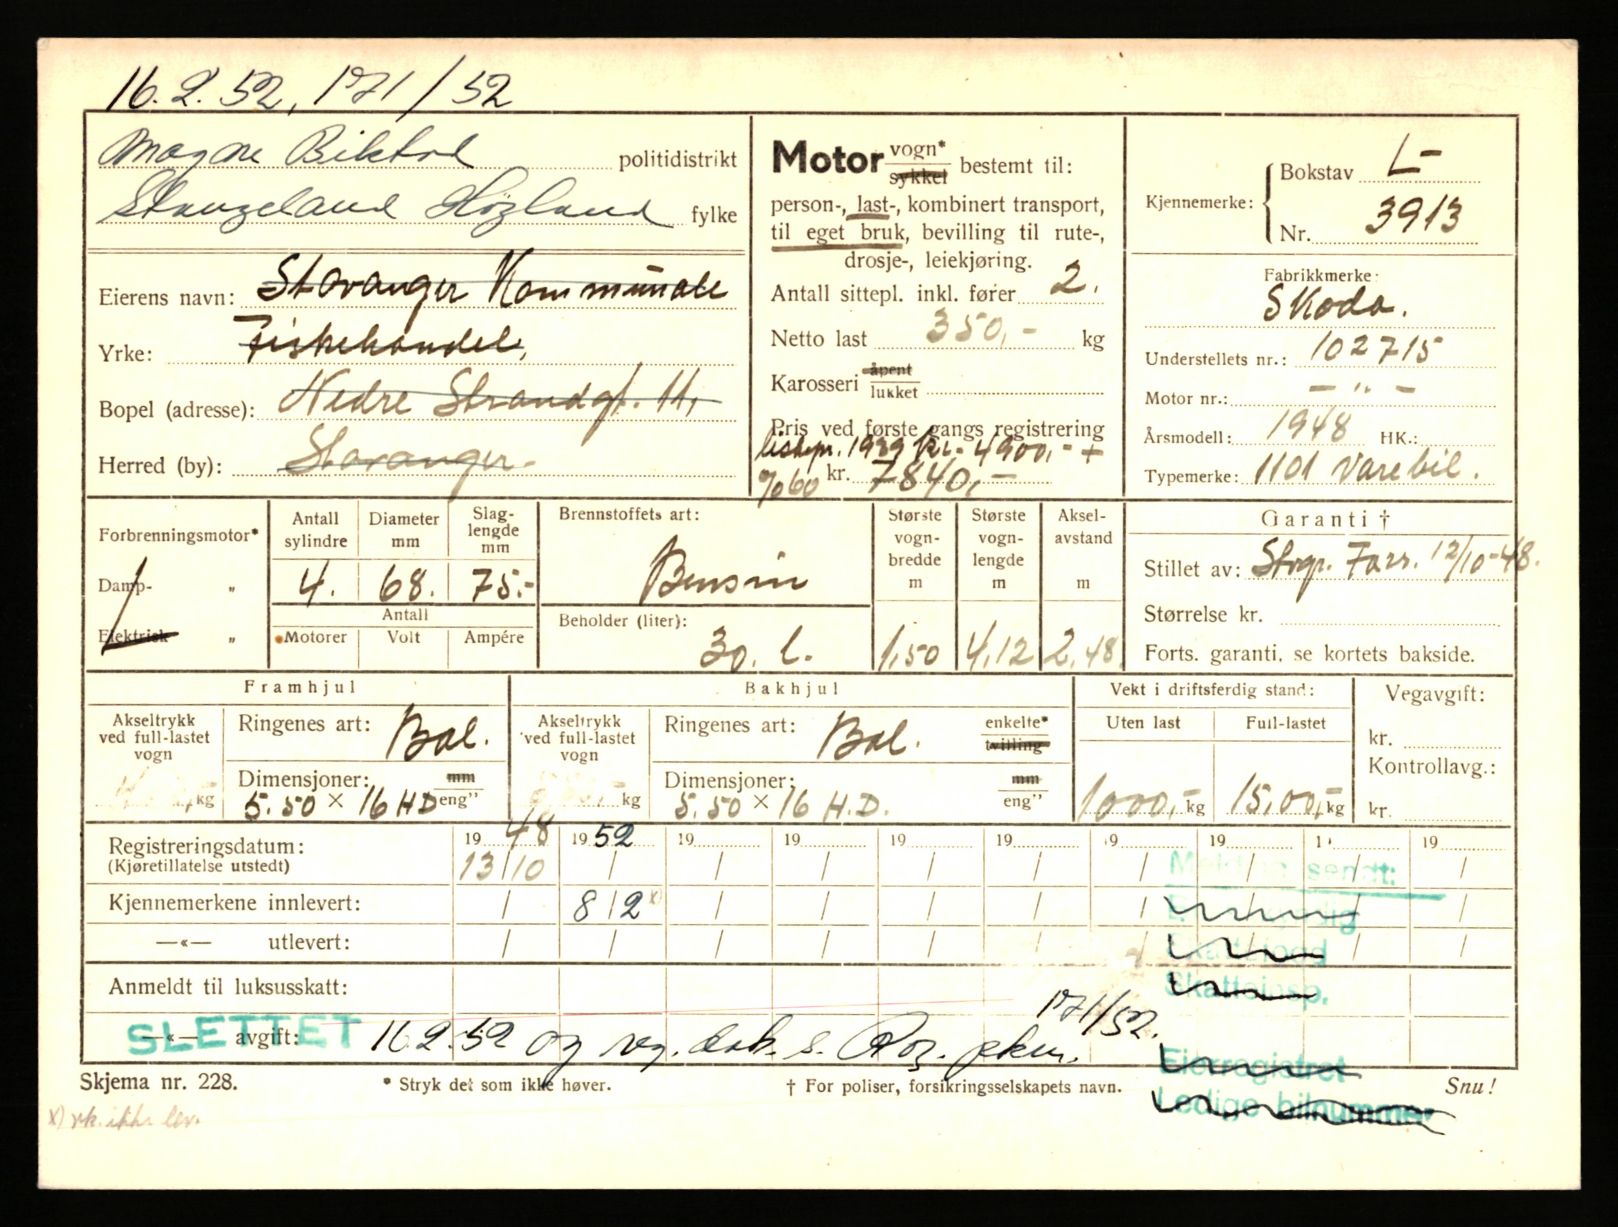 16.2.52, 171/52
Magne Bikthol politidistrikt
Stangeland Højland fylke
Eierens navn: Stavanger Kommunale
Yrke: Fiskehandel,
Bopel (adresse): Nedre Strandgt. 11,
Herred (by): Stavanger.
Motor vogn* sykkel bestemt til:
person-, last-, kombinert transport,
til eget bruk, bevilling til rute-,
drosje-, leiekjøring.
Antall sittepl. inkl. fører 2.
Netto last 350,- kg
Karosseri åpent lukket
Pris ved første gangs registrering
listepr. 1939 kr.- 4900,- +
% 60 kr. 7840,-
Kjennemerke: Bokstav L-
Nr. 3913
Fabrikkmerke:
Skoda.
Understellets nr.: 102715
Motor nr.: - " -
Årsmodell: 1948 HK.:
Typemerke: 1101 Varebil.
Forbrenningsmotor*
Damp- „
Elektrisk „
Antall sylindre Diameter mm Slag-lengde mm
4. 68. 75.-
Antall
Motorer Volt Ampére
Brennstoffets art:
Bensin
Beholder (liter):
30. l.
Største vogn-bredde m Største vogn-lengde m Aksel-avstand m
1,50 4,12 2,48
Garanti †
Stillet av: Strgr. Fors. 12/10-48.
Størrelse kr.
Forts. garanti, se kortets bakside.
Framhjul
Akseltrykk ved full-lastet vogn
kg
Ringenes art: Bal.
Dimensjoner: mm
5.50 × 16 HD eng"
Bakhjul
Akseltrykk ved full-lastet vogn
kg
Ringenes art: Bal. enkelte* tvilling
Dimensjoner: mm
5.50 × 16 H.D. eng"
Vekt i driftsferdig stand:
Uten last Full-lastet
1000,- kg 15,00,- kg
Vegavgift:
kr.
Kontrollavg.:
kr.
Registreringsdatum: 19 48 19 52 19 19 19 19 19 19 19
(Kjøretillatelse utstedt) 13/10
Kjennemerkene innlevert: 8/2 x)
—«— utlevert:
Anmeldt til luksusskatt:
—«— avgift:
SLETTET 16.2.52 og vog. dok. s. Rog. pkm. 171/52.
Melding sendt:
Skattoinsp.
Eierregistret
Ledige bilnummer
Skjema nr. 228. * Stryk det som ikke høver. † For poliser, forsikringsselskapets navn. Snu!
x) vk. ikke lev.